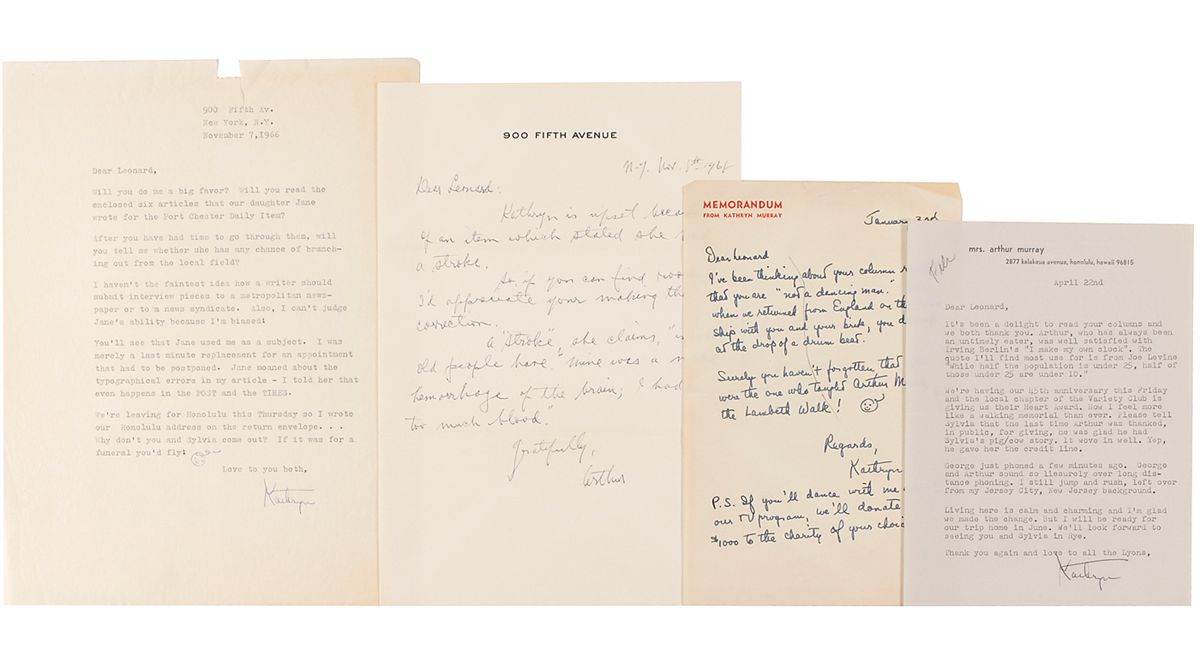 900 Fifth Av.
New York, N.Y.
November 7,1966
Dear Leonard,
Will you do me a big favor? Will you read the
enclosed six articles that our daughter Jane
wrote for the Port Chester Daily Item?
After you have had time to go through them, will
you tell me whether she has any chance of branch-
ing out from the local field?
I haven't the faintest idea how a writer should
submit interview pieces to a metropolitan news-
paper or to a news syndicate. Also, I can't judge
Jane's ability because I'm biased!
You'll see that Jane used me as a subject. I was
merely a last minute replacement for an appointment
that had to be postponed. Jane moaned about the
typographical errors in my article - I told her that
even happens in the POST and the TIMES.
We're leaving for Honolulu this Thursday so I wrote
our Honolulu address on the return envelope. . .
Why don't you and Sylvia come out? If it was for a
funeral you'd fly!
Love to you both,
Kathryn
900 FIFTH AVENUE
N.Y. Nov. 8th
Dear Leonard:
Kathryn is upset
of an item which stated she
a stroke.
So if you can find
I'd appreciate your making the
correction.
A "stroke", she claims,
old people have. Mine was a
hemorrhage of the brain; I had
too much blood."
Gratefully,
Arthur
MEMORANDUM
FROM KATHRYN MURRAY
January 3rd
Dear Leonard
I've been thinking about your column
that you are "not a dancing man."
When we returned from England on the
ship with you and your bride, you
at the drop of a drum beat.
Surely you haven't forgotten that
were the one who taught Arthur M
the Lambeth Walk!
Regards,
Kathryn
P.S. If you'll dance with me
our TV program, we'll donate
$1000 to the charity of your
mrs. arthur murray
2877 kalakaua avenue, honolulu, hawaii 96815
April 22nd
Dear Leonard,
It's been a delight to read your columns and
we both thank you. Arthur, who has always been
an untimely eater, was well satisfied with
Irving Berlin's "I make my own clock". The
quote I'll find most use for is from Joe Levine
"While half the population is under 25, half of
those under 25 are under 10."
We're having our 45th anniversary this Friday
and the local chapter of the Variety Club is
giving us their Heart Award. Now I feel more
like a walking memorial than ever. Please tell
Sylvia that the last time Arthur was thanked,
in public, for giving, he was glad he had
Sylvia's pig/cow story. It wove in well. Yep,
he gave her the credit line.
George just phoned a few minutes ago. George
and Arthur sound so liesurely over long dis-
tance phoning. I still jump and rush, left over
from my Jersey City, New Jersey background.
Living here is calm and charming and I'm glad
we made the change. But I will be ready for
our trip home in June. We'll look forward to
seeing you and Sylvia in Rye.
Thank you again and love to all the Lyons,
Kathryn